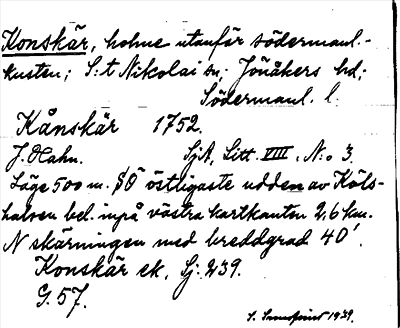 Konskär, holme utanför södermanl.-
kusten; S:t Nikolai sn; Jönåkers hd;
Södermanl. l.
Kånskär 1752.
J. Hahn. SjA, Litt. VIII, N:o 3.
Läge 500 m. SÖ östligaste udden av Käls-
halven bel. inpå västra kartkanten 2,6 km.
N skärningen med breddgrad 40'.
Konskär ek, Sj. 239.
G. 57.
S. 1939.